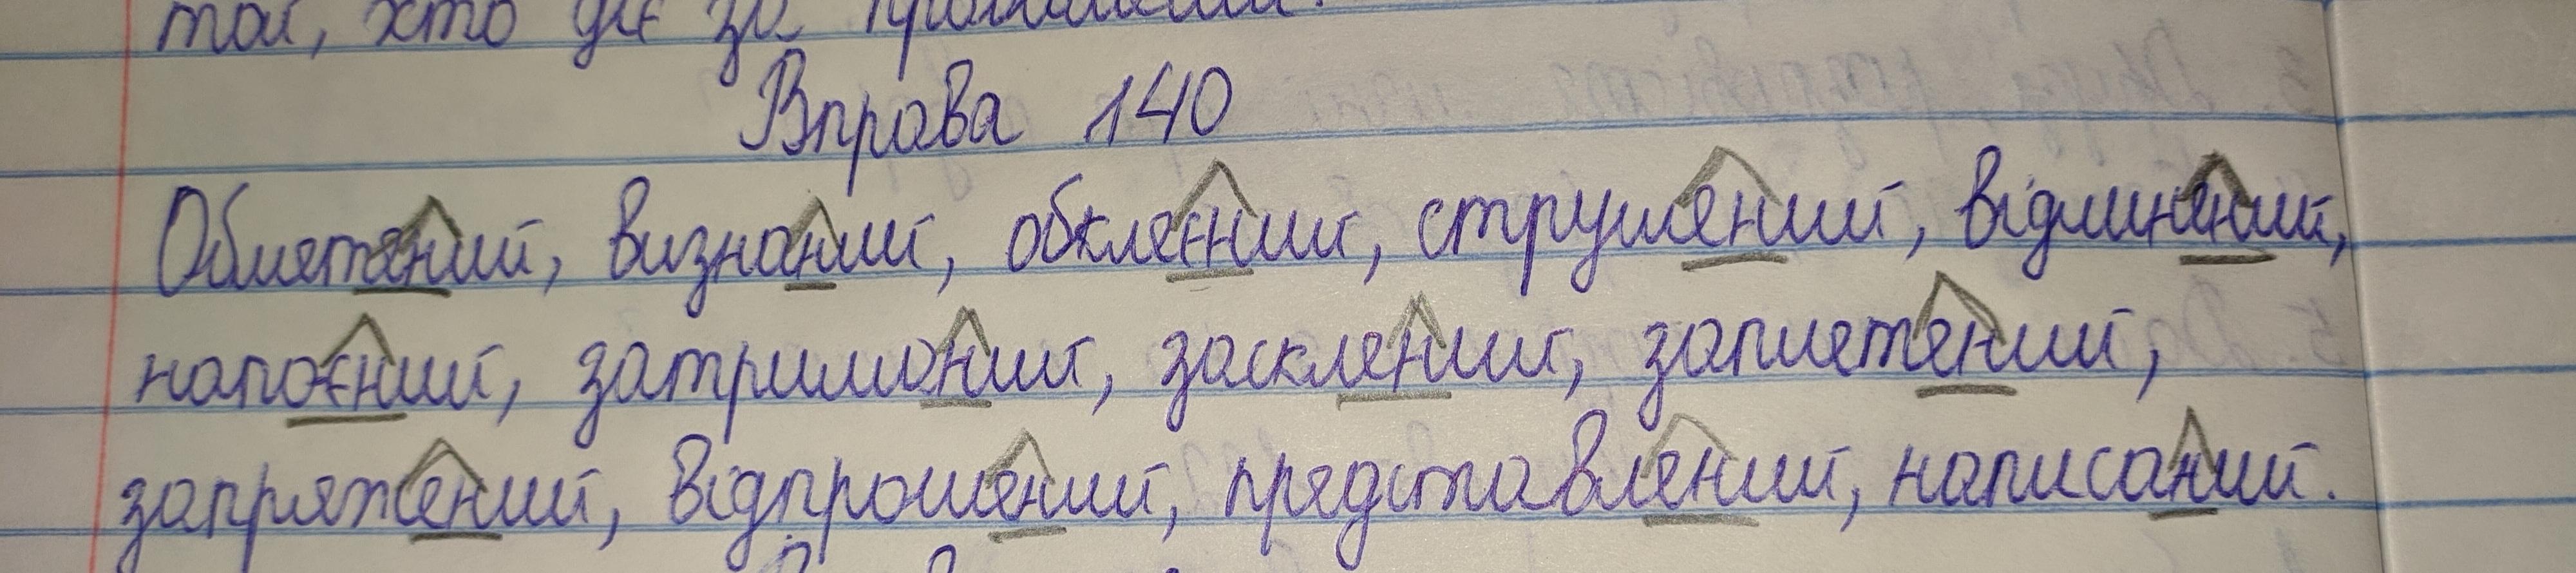 той, хто діє за
Вправа 140
Обметений, визнаний, обклеєний, струшений, відминений,
напоєний, затриманий, засклений, заплетений,
запряжений, відпрошений, представлений, написаний.